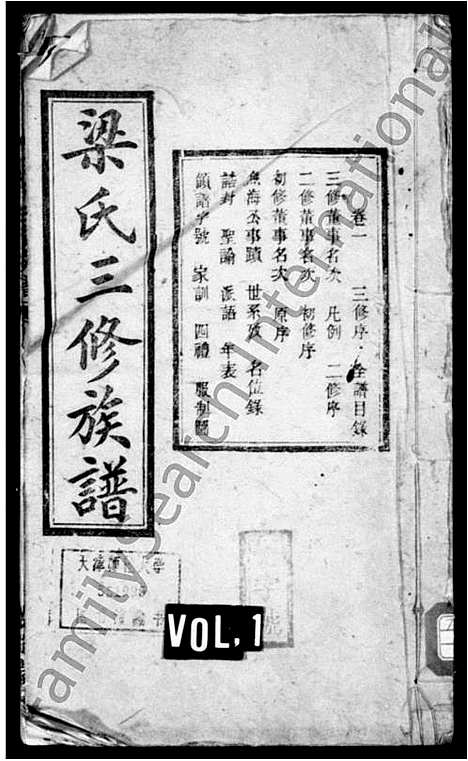 梁氏三修族譜
卷一 三修序 全譜目錄
三修董事名次 凡例 二修序
二修董事名次 初修序
初修董事名次 原序
魚海丞事蹟 世系攷 名位錄
誥封 聖諭 派語 年表
領譜字號 家訓 四禮 服制圖
VOL. 1
FamilySearch International